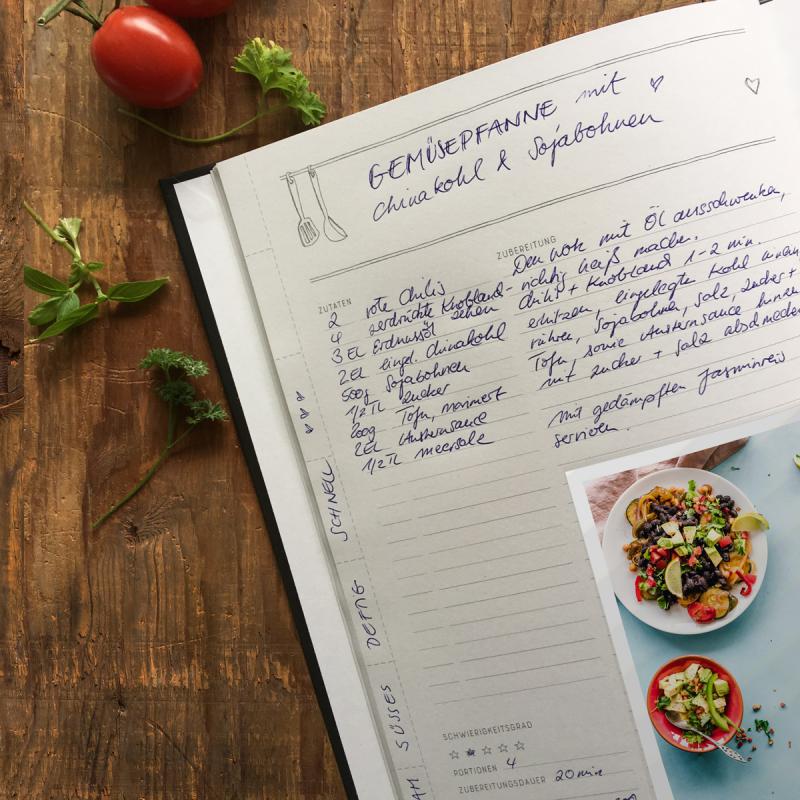 GEMÜSEPFANNE mit
chinakohl & Sojabohnen
ZUTATEN
2 rote Chilis
4 zerdrückte Knoblauch-
zehen
3 EL Erdnussöl
2 EL eingel. Chinakohl
500g Sojabohnen
1/2 TL Zucker
200g Tofu, mariniert
2 EL Austernsauce
1/2 TL meersalz
ZUBEREITUNG
Den Wok mit Öl ausschwenken,
richtig heiß machen.
Chili + Knoblauch 1-2 min.
erhitzen, eingelegte Kohl
rühren, Sojabohnen, Salz, Zucker +
Tofu, sowie Austernsauce
mit Zucker + Salz abschmecken
Mit gedämpften Jasminreis
servieren.
SCHNELL
DEFTIG
SÜSSES
SCHWIERIGKEITSGRAD
PORTIONEN 4
ZUBEREITUNGSDAUER 20 min